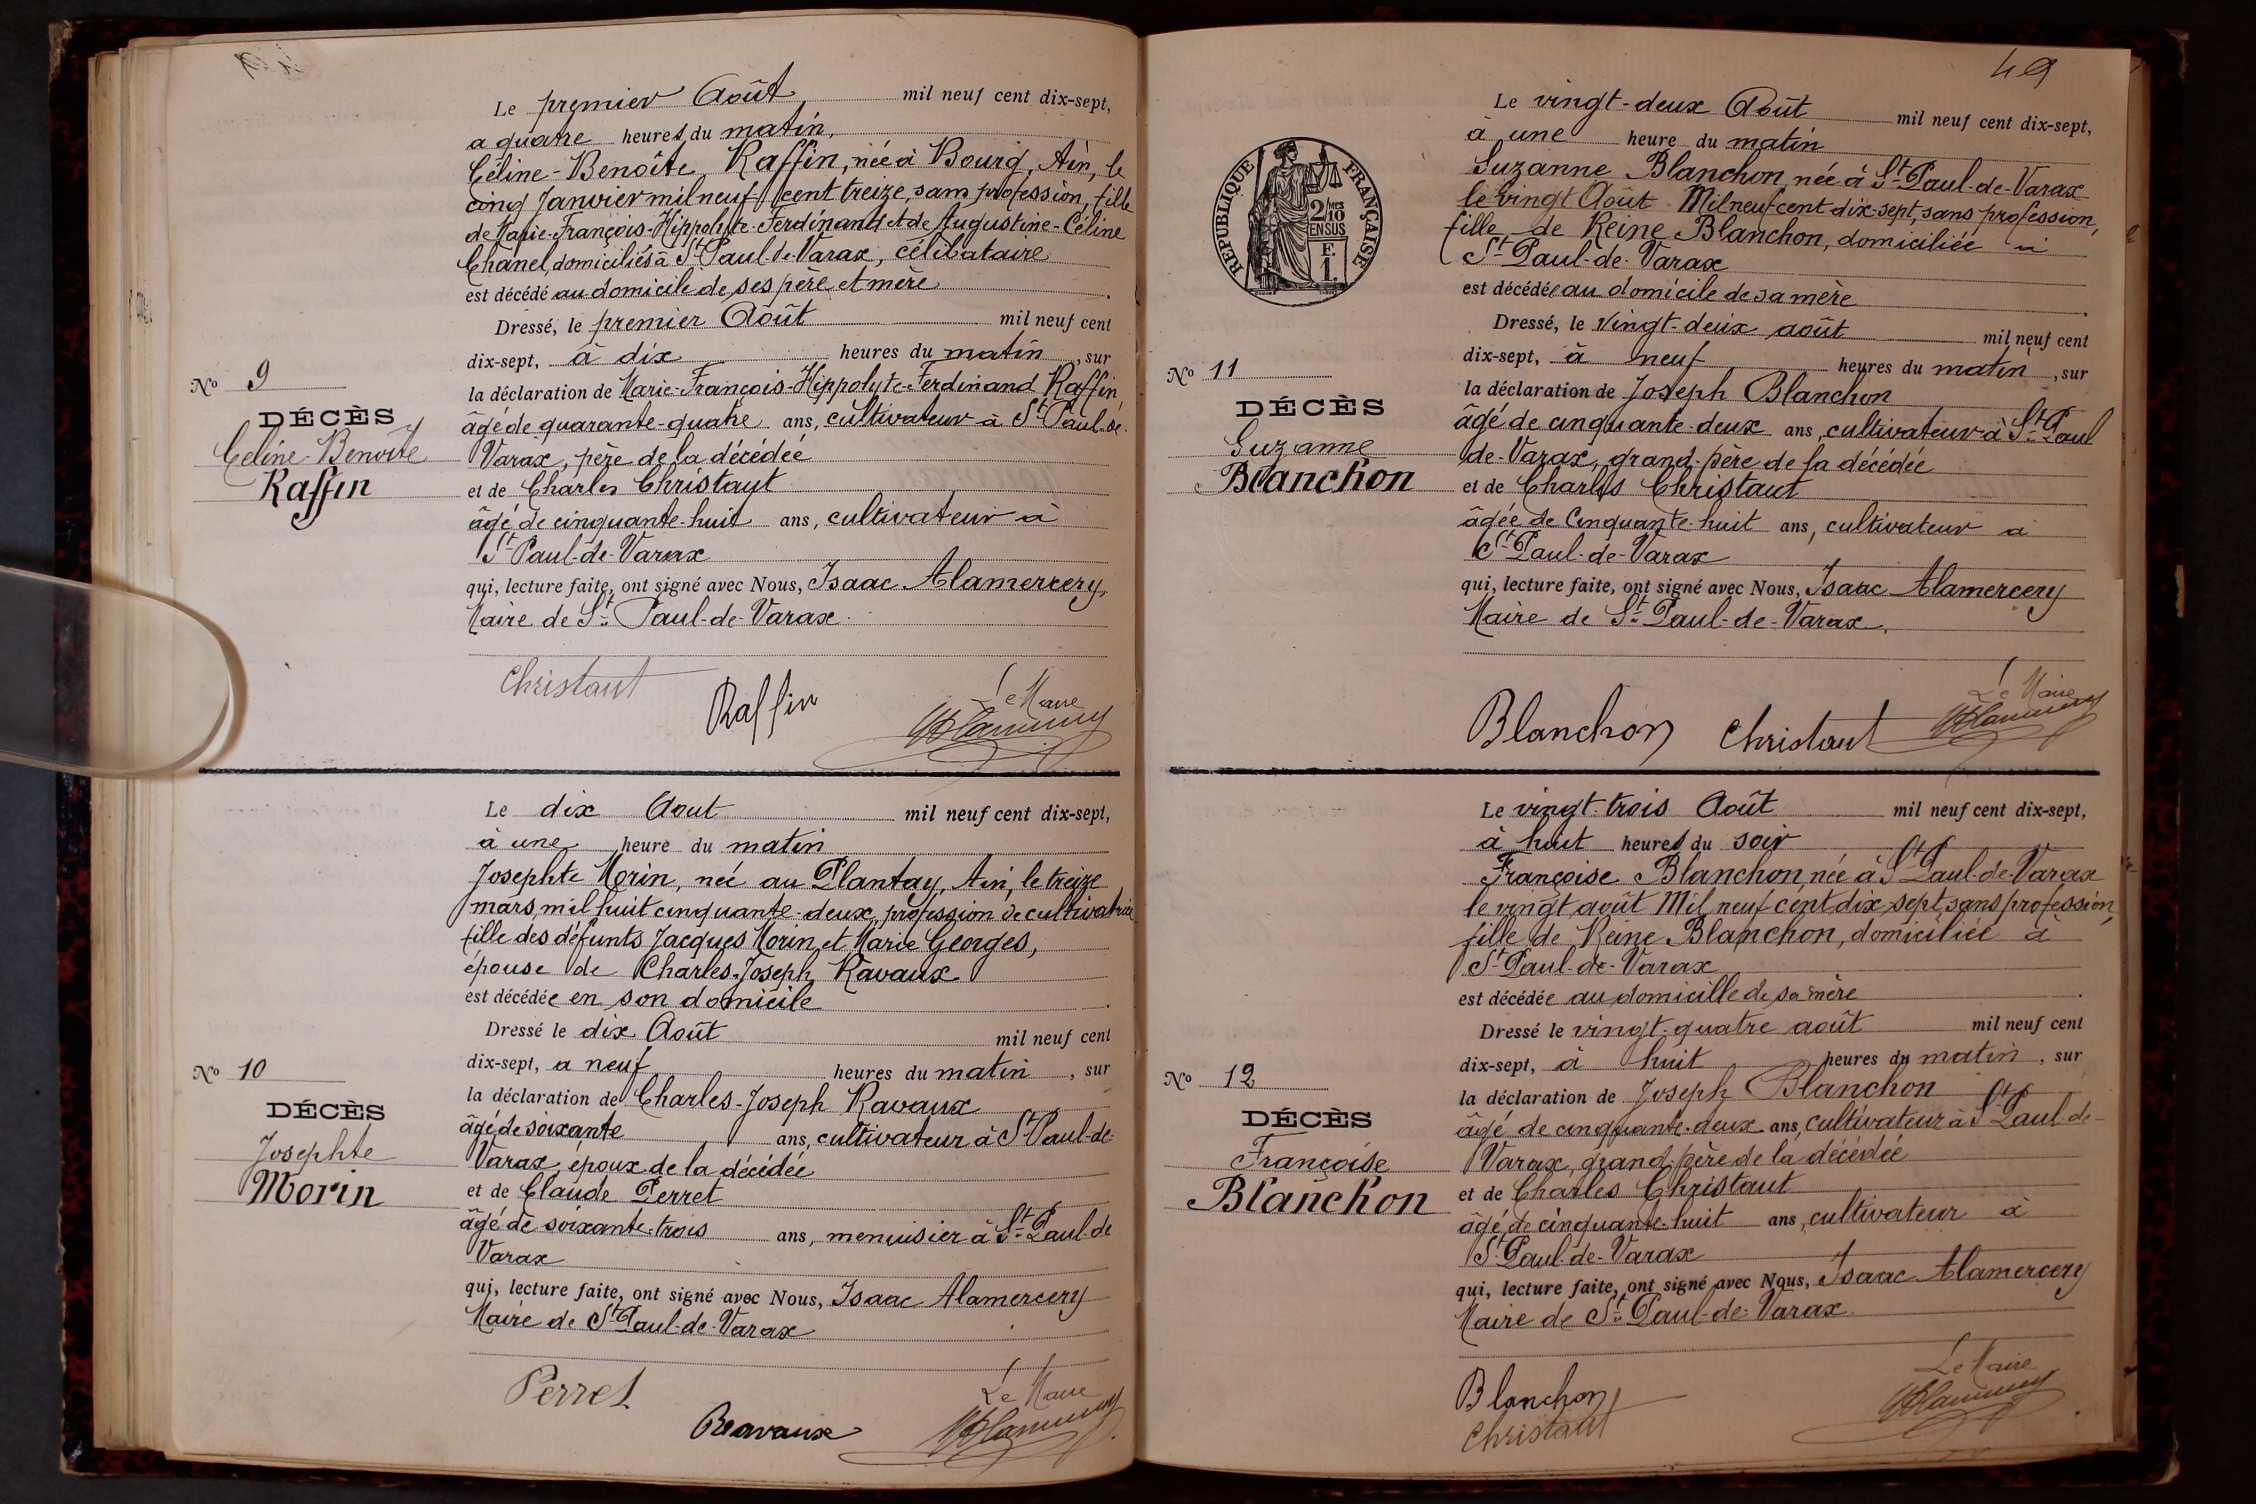 Le premier Août mil neuf cent dix-sept,
a quatre heures du matin,
Céline-Benoîte Raffin, née à Bourg, Ain, le
cinq Janvier mil neuf cent treize, sans profession, fille
de Marie-François-Hippolyte-Ferdinand et de Augustine-Céline
Chanel, domiciliés à St Paul-de-Varax, célibataire
est décédé au domicile de ses père et mère.
Dressé, le premier Août mil neuf cent
dix-sept, à dix heures du matin, sur
la déclaration de Marie-François-Hippolyte-Ferdinand Raffin,
âgé de quarante-quatre ans, cultivateur à St Paul-de-
Varax, père de la décédée
et de Charles Christaut
âgé de cinquante-huit ans, cultivateur à
St Paul-de-Varax
qui, lecture faite, ont signé avec Nous, Isaac Alamercery,
Maire de St Paul-de-Varax.
Christaut
Raffin
Le Maire
No 9
DÉCÈS
Céline-Benoîte
Raffin
Le dix Aout mil neuf cent dix-sept,
à une heure du matin
Josephte Morin, née au Plantay, Ain, le treize
mars mil huit cinquante-deux, profession de cultivatrice
fille des défunts Jacques Morin et Marie Georges,
épouse de Charles-Joseph Ravaux
est décédée en son domicile.
Dressé le dix Août mil neuf cent
dix-sept, a neuf heures du matin, sur
la déclaration de Charles-Joseph Ravaux
âgé de soixante ans, cultivateur à St Paul-de-
Varax, époux de la décédée
et de Claude Perret
âgé de soixante-trois ans, menuisier à St Paul-de
Varax
qui, lecture faite, ont signé avec Nous, Isaac Alamercery
Maire de St Paul-de-Varax
Perret
Ravaux
Le Maire
No 10
DÉCÈS
Josephte
Morin
49
RÉPUBLIQUE FRANÇAISE
2/10 MES
EN SUS
F.
1.
Le vingt-deux Août mil neuf cent dix-sept,
à une heure du matin
Suzanne Blanchon née à St Paul-de-Varax
le vingt Août Mil neuf cent dix-sept, sans profession,
fille de Reine Blanchon, domiciliée à
St Paul-de-Varax
est décédée au domicile de sa mère.
Dressé, le Vingt-deux août mil neuf cent
dix-sept, à neuf heures du matin, sur
la déclaration de Joseph Blanchon
âgé de cinquante-deux ans, cultivateur à St Paul
de-Varax, grand-père de la décédée
et de Charles Christaut
âgée de Cinquante-huit ans, cultivateur a
St Paul-de-Varax
qui, lecture faite, ont signé avec Nous, Isaac Alamercery
Maire de St Paul-de-Varax.
Blanchon Christaut
Le Maire
No 11
DÉCÈS
Suzanne
Blanchon
Le vingt-trois Août mil neuf cent dix-sept,
à huit heures du soir
Françoise Blanchon, née à St Paul-de-Varax
le vingt août Mil neuf cent dix sept, sans profession,
fille de Reine Blanchon, domiciliée à
St Paul-de-Varax
est décédée au domicille de sa mère.
Dressé le vingt-quatre août mil neuf cent
dix-sept, à huit heures du matin, sur
la déclaration de Joseph Blanchon
âgé de cinquante-deux ans, cultivateur à St Paul-de-
Varax, grand-père de la décédée
et de Charles Christaut
âgé de cinquante-huit ans, cultivateur à
St Paul-de-Varax
qui, lecture faite, ont signé avec Nous, Isaac Alamercery
Maire de St Paul-de-Varax.
Blanchon
Christaut
Le Maire
No 12
DÉCÈS
Françoise
Blanchon